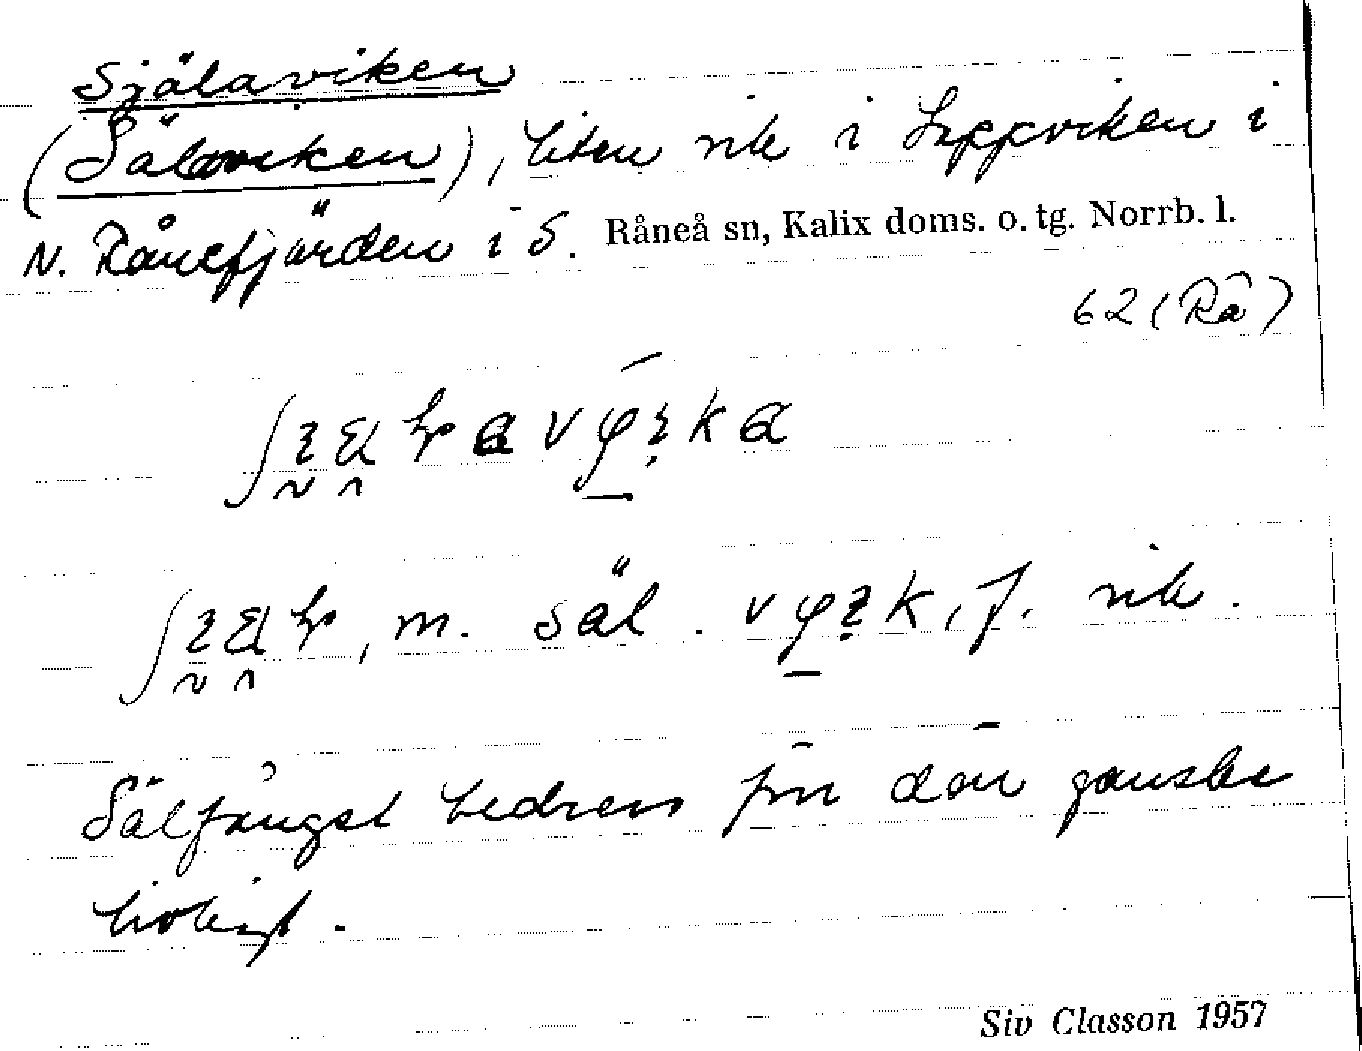 Själaviken
(Sälaviken), liten vik i Sappviken i
N. Rånefjärden i S. Råneå sn, Kalix doms. o. tg. Norrb. l.
62 (Rå)
m. säl. f. vik.
Sälfångst bedrevs förr där ganska
livligt.
Siv Classon 1957